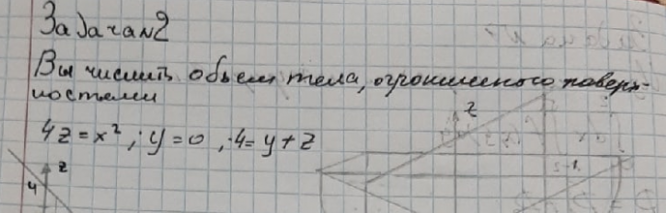 Задача №2
Вычислить объем тела, ограниченного поверх-
ностями
4z = x², y = 0, 4 = y + z
z
z
4